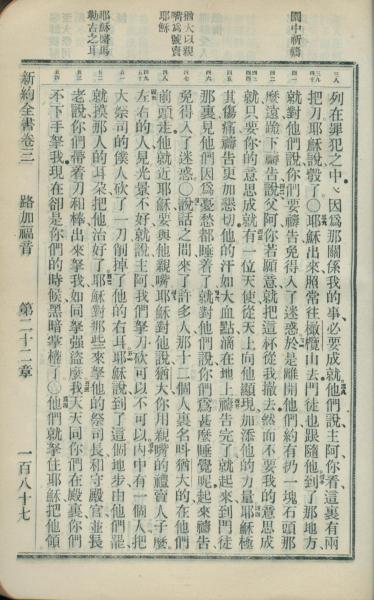 園中祈禱
猶大以親
嘴爲號賣
耶穌
耶穌醫馬
勒古之耳
列在罪犯之中、因爲那關係我的事、必要成就他們說主阿你看這裏有兩
把刀耶穌說彀了〇耶穌出來照常往橄欖山去門徒也跟隨他到了那地方、
就對他們說、你們要禱告免得入了迷惑於是離開他們約有扔一塊石頭那
麼遠跪下禱告說父阿你若願意就把這杯從我撤去然而不要我的意思成
就只要你的意思成就有一位天使從天上向他顯現加添他的力量耶穌極
其傷痛禱告更加懇切他的汗如大血點滴在地上禱告完了就起來到門徒
那裏見他們因爲憂愁都睡着了就對他們說你們爲甚麼睡覺呢起來禱告
免得入了迷惑〇說話之間來了許多人那十二個人裏名呌猶大的在他們
前頭走他就近耶穌要與他親嘴耶穌對他說猶大你用親嘴的禮賣人子麼
左右的人見光景不好就說主阿我們拏刀砍可以不可以內中有一個人把
大祭司的僕人砍了一刀削掉了他的右耳耶穌說到了這個地步由他們罷、
就摸那人的耳朶把他治好了耶穌對那些來拏他的祭司長和守殿官並長
老說你們帶着刀和棒出來拏我如同拏強盜麼我天天同你們在殿裏你們
不下手拏我現在卻是你們的時候黑暗掌權了〇他們就拏住耶穌把他領
新約全書卷三　路加福音　第二十二章　一百八十七